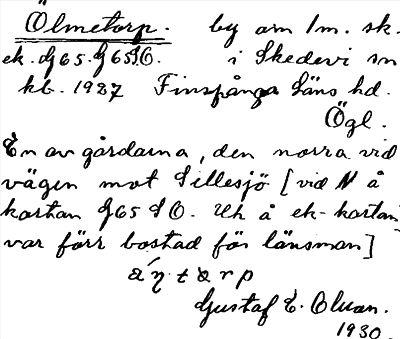 Ölmetorp. by om 1m. sk.
ek. G65. G65SO. i Skedevi sn
kb. 1927 Finspånga Läns hd.
Ögl.
En av gårdarna, den norra vid
vägen mot Sillesjö [vid N å
kartan G65 SO. Uh å ek-kartan
var förr bostad för länsman]
Gustaf E. Olsson.
1930.